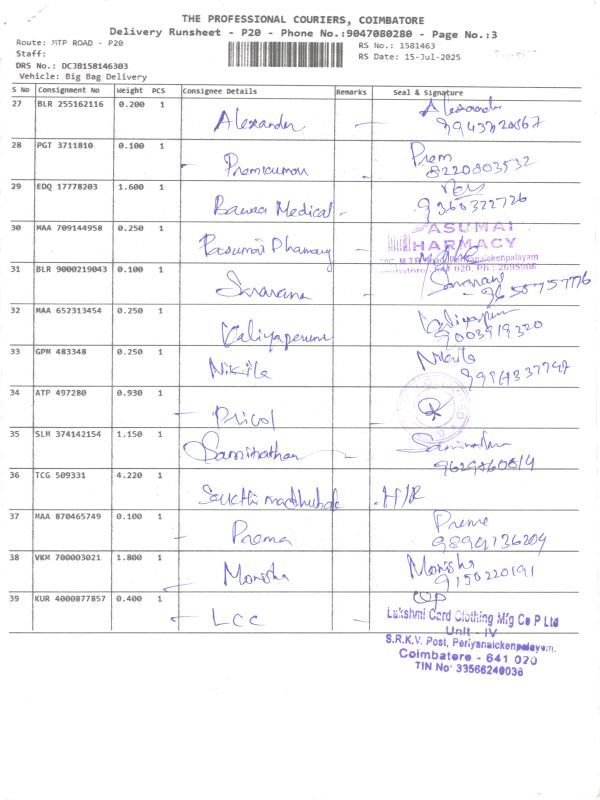 THE PROFESSIONAL COURIERS, COIMBATORE
Delivery Runsheet - P20 - Phone No.:9047080280 - Page No.:3
Route: MTP ROAD - P20
RS No.: 1581463
Staff:
RS Date: 15-Jul-2025
DRS No.: DCJB158146303
Vehicle: Big Bag Delivery
S No Consignment No Weight PCS Consignee Details Remarks Seal & Signature
27 BLR 255162116 0.200 1 Alexander Alexander
28 PGT 3711810 0.100 1 Premkumar Prem
8220803532
29 EDQ 17778203 1.600 1 Bawa Medical
9365322726
30 MAA 709144958 0.250 1 Pasumai Pharmacy ASUMAI
HARMACY
31 BLR 9000219043 0.100 1 Saravana
32 MAA 652313454 0.250 1 Kaliyaperum
9003919320
33 GPM 483348 0.250 1 Nikila Nikila
34 ATP 497280 0.930 1 Pricol
35 SLM 374142154 1.150 1 Saminathan
36 TCG 509331 4.220 1 H/R
37 MAA 870465749 0.100 1 Prema Preme
9894736204
38 VKM 700003021 1.800 1 Monisha Monisha
9150220191
39 KUR 4000877857 0.400 1 LCC
Lakshmi Card Clothing Mfg Co P Ltd
Unit - IV
S.R.K.V. Post, Periyanaickenpalayam.
Coimbatore - 641 020
TIN No: 33566240036